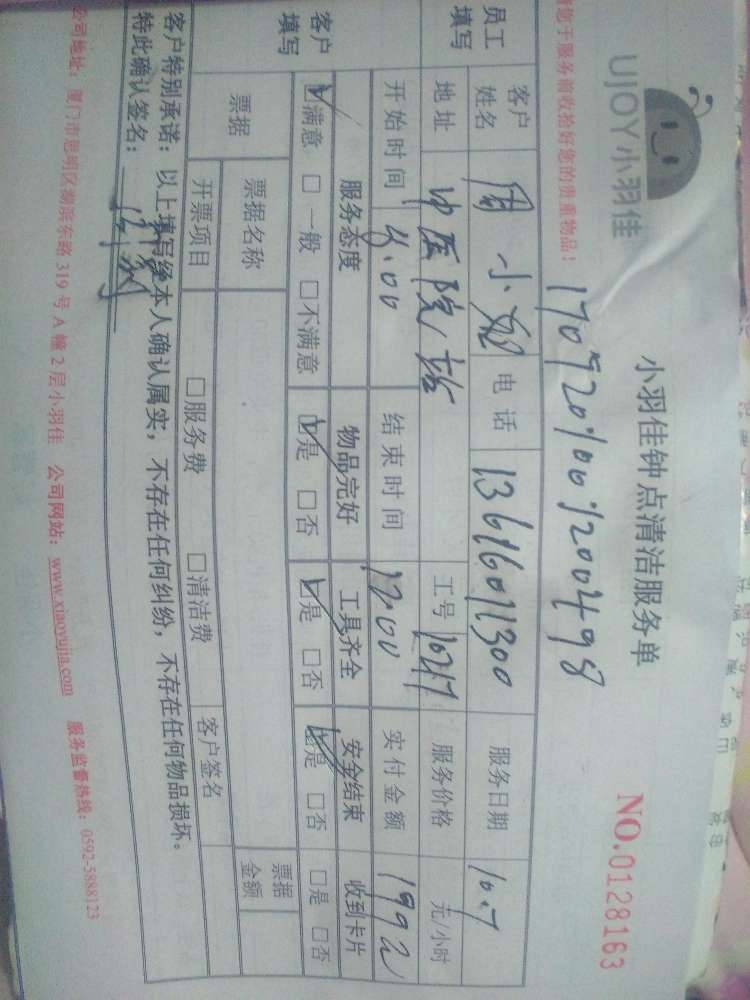 UJOY小羽佳
小羽佳钟点清洁服务单
NO.0128163
您于服务前收拾好您的贵重物品：
员工填写
客户姓名 周小 电话 13616011300 服务日期 10.7
地址 中医院站 工号 10217 服务价格 元/小时
开始时间 8.00 结束时间 12.00 实付金额 1992
客户填写
服务态度 物品完好 工具齐全 安全结束 收到卡片
☑满意 □一般 □不满意 ☑是 □否 ☑是 □否 ☑是 □否 □是 □否
票据 票据名称 票据金额
开票项目 □服务费 □清洁费 客户签名
客户特别承诺：以上填写经本人确认属实，不存在任何纠纷，不存在任何物品损坏。
特此确认签名：
公司地址：厦门市思明区湖滨东路 319 号 A 幢 2 层小羽佳 公司网站：www.xiaoyujia.com 服务监督热线：0592-5888123